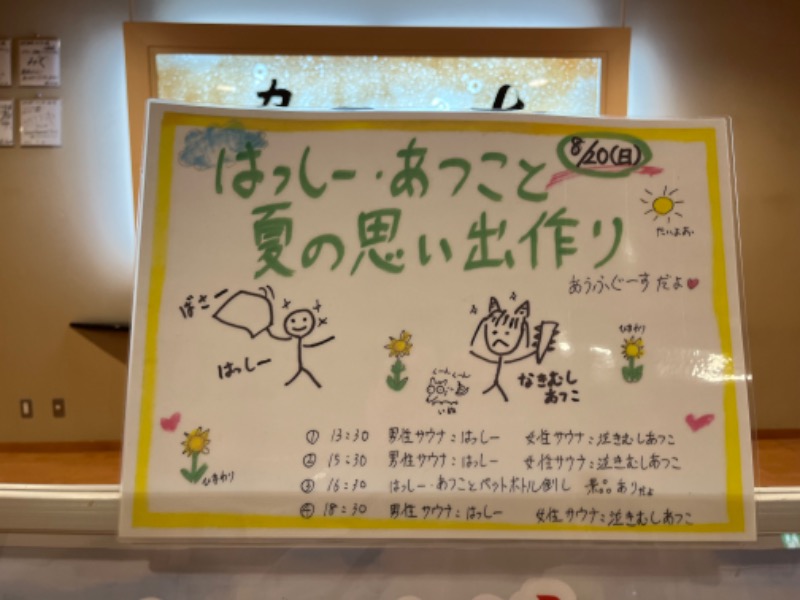 8/20(日)
はっしー・あつこと
夏の思い出作り
たいよお
あうふぐーすだよ
ばさー
はっしー
くーんくーん
いぬ
なきむし
あつこ
ひまわり
ひまわり
① 13:30 男性サウナ:はっしー 女性サウナ:泣きむしあつこ
② 15:30 男性サウナ:はっしー 女性サウナ:泣きむしあつこ
③ 16:30 はっしー・あつことペットボトル倒し 景品ありだよ
④ 18:30 男性サウナ:はっしー 女性サウナ:泣きむしあつこ